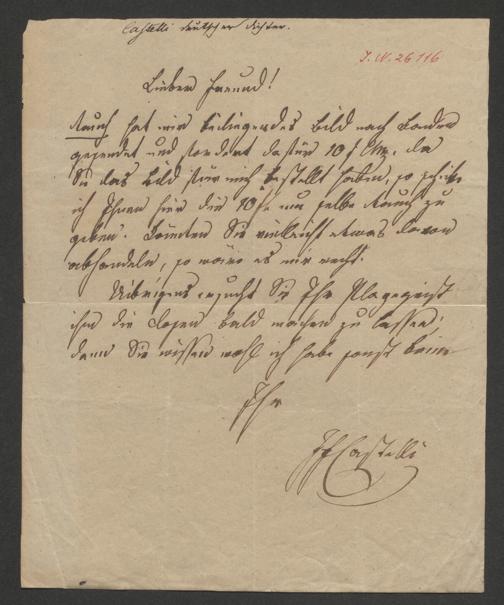 Castelli deutscher Dichter.
J. N. 26116
Lieber Freund!
Rauch hat mir beiliegendes Bild nach
gesendet und fordert dafür 10 f CMz. da
Sie das Bild für mich bestellt haben, so schicke
ich Ihnen hier die 10 f um selbe Rauch zu
geben. Könnten Sie vielleicht etwas davon
abhandeln, so wäre es mir recht.
Übrigens ersucht Sie Ihr Plagegeist
ihm die Dosen bald machen zu lassen,
denn Sie wissen wohl ich habe sonst keine
Ihr
JFCastelli